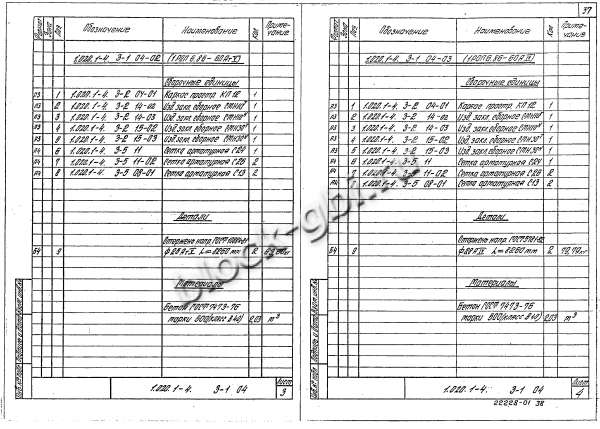 37
Формат Зона Поз. Обозначение Наименование Кол Приме-чание
1.020.1-4. 3-1 04-02 (1РОП 6.86-60АтV)
Сборочные единицы
А3 1 1.020.1-4. 3-2 04-01 Каркас простр. КП 12 1
А3 2 1.020.1-4. 3-2 14-02 Изд. закл. сборное 1
А3 3 1.020.1-4. 3-2 14-03 Изд. закл. сборное 1
А3 4 1.020.1-4. 3-2 15-02 Изд. закл. сборное 1
А3 5 1.020.1-4. 3-2 15-03 Изд. закл. сборное 1
А4 6 1.020.1-4. 3-5 11 Сетка арматурная С21 1
А4 7 1.020.1-4. 3-5 11-02 Сетка арматурная С26 2
А4 8 1.020.1-4. 3-5 08-01 Сетка арматурная С13 2
Детали
Стержень напр. ГОСТ
Б4 9 L=8260 мм 2
Материалы
Бетон ГОСТ 7473-76
марки 500(класс В40) 2,03 м³
1.020.1-4. 3-1 04
Лист
3
Формат Зона Поз. Обозначение Наименование Кол Приме-чание
1.020.1-4. 3-1 04-03 (1РОП 6.86-60АIV)
Сборочные единицы
А3 1 1.020.1-4. 3-2 04-01 Каркас простр. КП 12 1
А3 2 1.020.1-4. 3-2 14-02 Изд. закл. сборное 1
А3 3 1.020.1-4. 3-2 14-03 Изд. закл. сборное 1
А3 4 1.020.1-4. 3-2 15-02 Изд. закл. сборное 1
А3 5 1.020.1-4. 3-2 15-03 Изд. закл. сборное 1
А4 6 1.020.1-4. 3-5 11 Сетка арматурная С21 1
7 1.020.1-4. 3-5 11-02 Сетка арматурная С26 2
1.020.1-4. 3-5 08-01 Сетка арматурная С13 2
Детали
Стержень напр. ГОСТ 5781-82
Б4 9 L=8260 мм 2
Материалы
Бетон ГОСТ 7473-76
марки 500(класс В40) 2,03 м³
1.020.1-4. 3-1 04
Лист
4
22228-01 38
block-gbi.ru